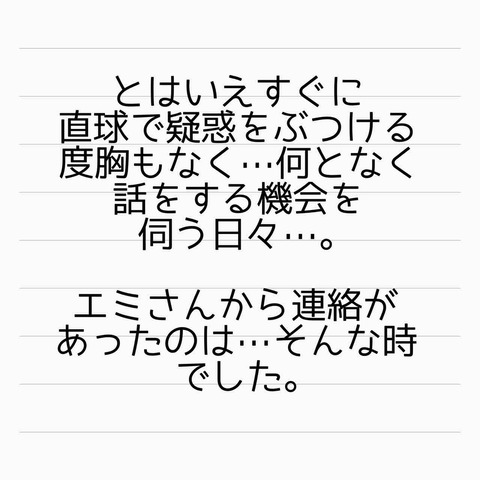 とはいえすぐに
直球で疑惑をぶつける
度胸もなく…何となく
話をする機会を
伺う日々…。
エミさんから連絡が
あったのは…そんな時
でした。